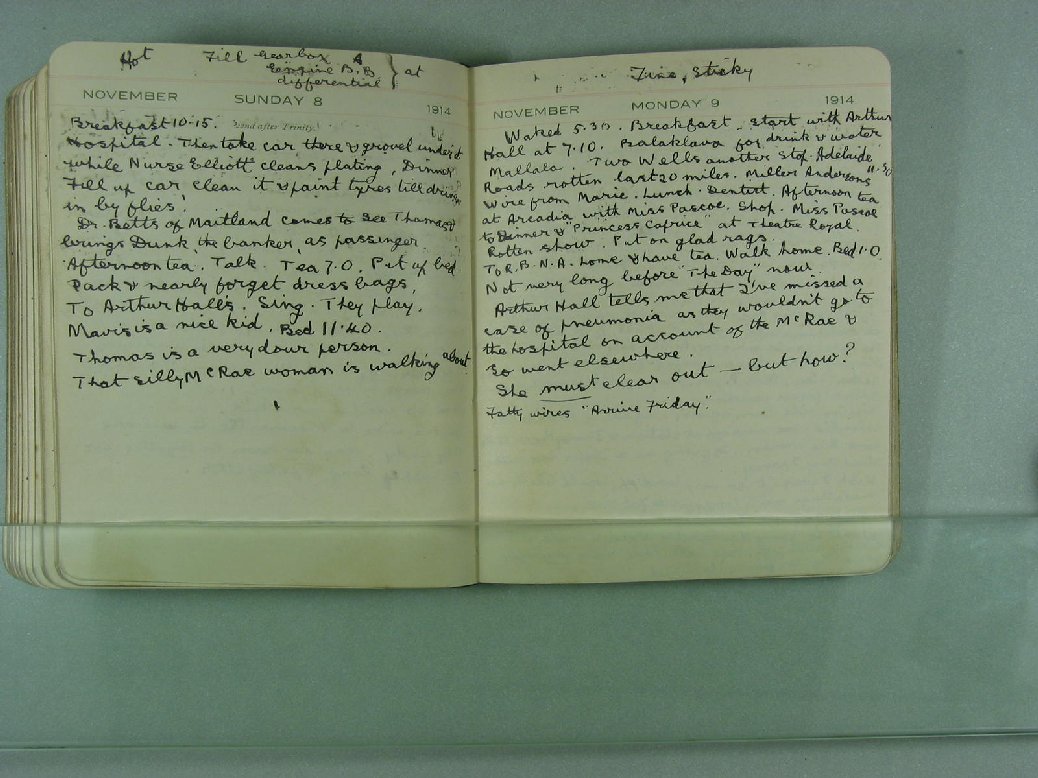 Hot Fill Gearbox &
Engine B.B } at
differential
NOVEMBER SUNDAY 8 1914
Breakfast 10.15. 22nd after Trinity.
Hospital. Then take car there & grovel under it
while Nurse Elliott cleans plating, Dinner
Fill up car clean it & paint tyres till driven
in by flies!
Dr. Betts of Maitland comes to see Thomas &
brings Dunk 'the banker' as passenger.
Afternoon tea. Talk. Tea 7.0. Put up bed
Pack & nearly forget dress bags,
To Arthur Hall's. Sing. They play.
Mavis is a nice kid. Bed 11.40.
Thomas is a very dour person.
That silly McRae woman is walking about
Fine, Sticky
NOVEMBER MONDAY 9 1914
Waked 5.30. Breakfast. Start with Arthur
Hall at 7.10. Balaklava for drink & water
Mallala. Two Wells another stop. Adelaide 11.30
Roads rotten last 20 miles. Miller Andersons
Wire from Marie. Lunch. Dentist. Afternoon tea
at Arcadia with Miss Pascoe. Shop. Miss Pascoe
to Dinner & "Princess Caprice" at Theatre Royal.
Rotten show. Put on glad rags.
To R.B.N.A. home & have tea. Walk home. Bed 1.0
Not very long before "The Day" now
Arthur Hall tells me that I've missed a
case of pneumonia as they wouldn't go to
the hospital on account of the McRae &
so went elsewhere.
She must clear out — but how?
Fatty wires "Arrive Friday".